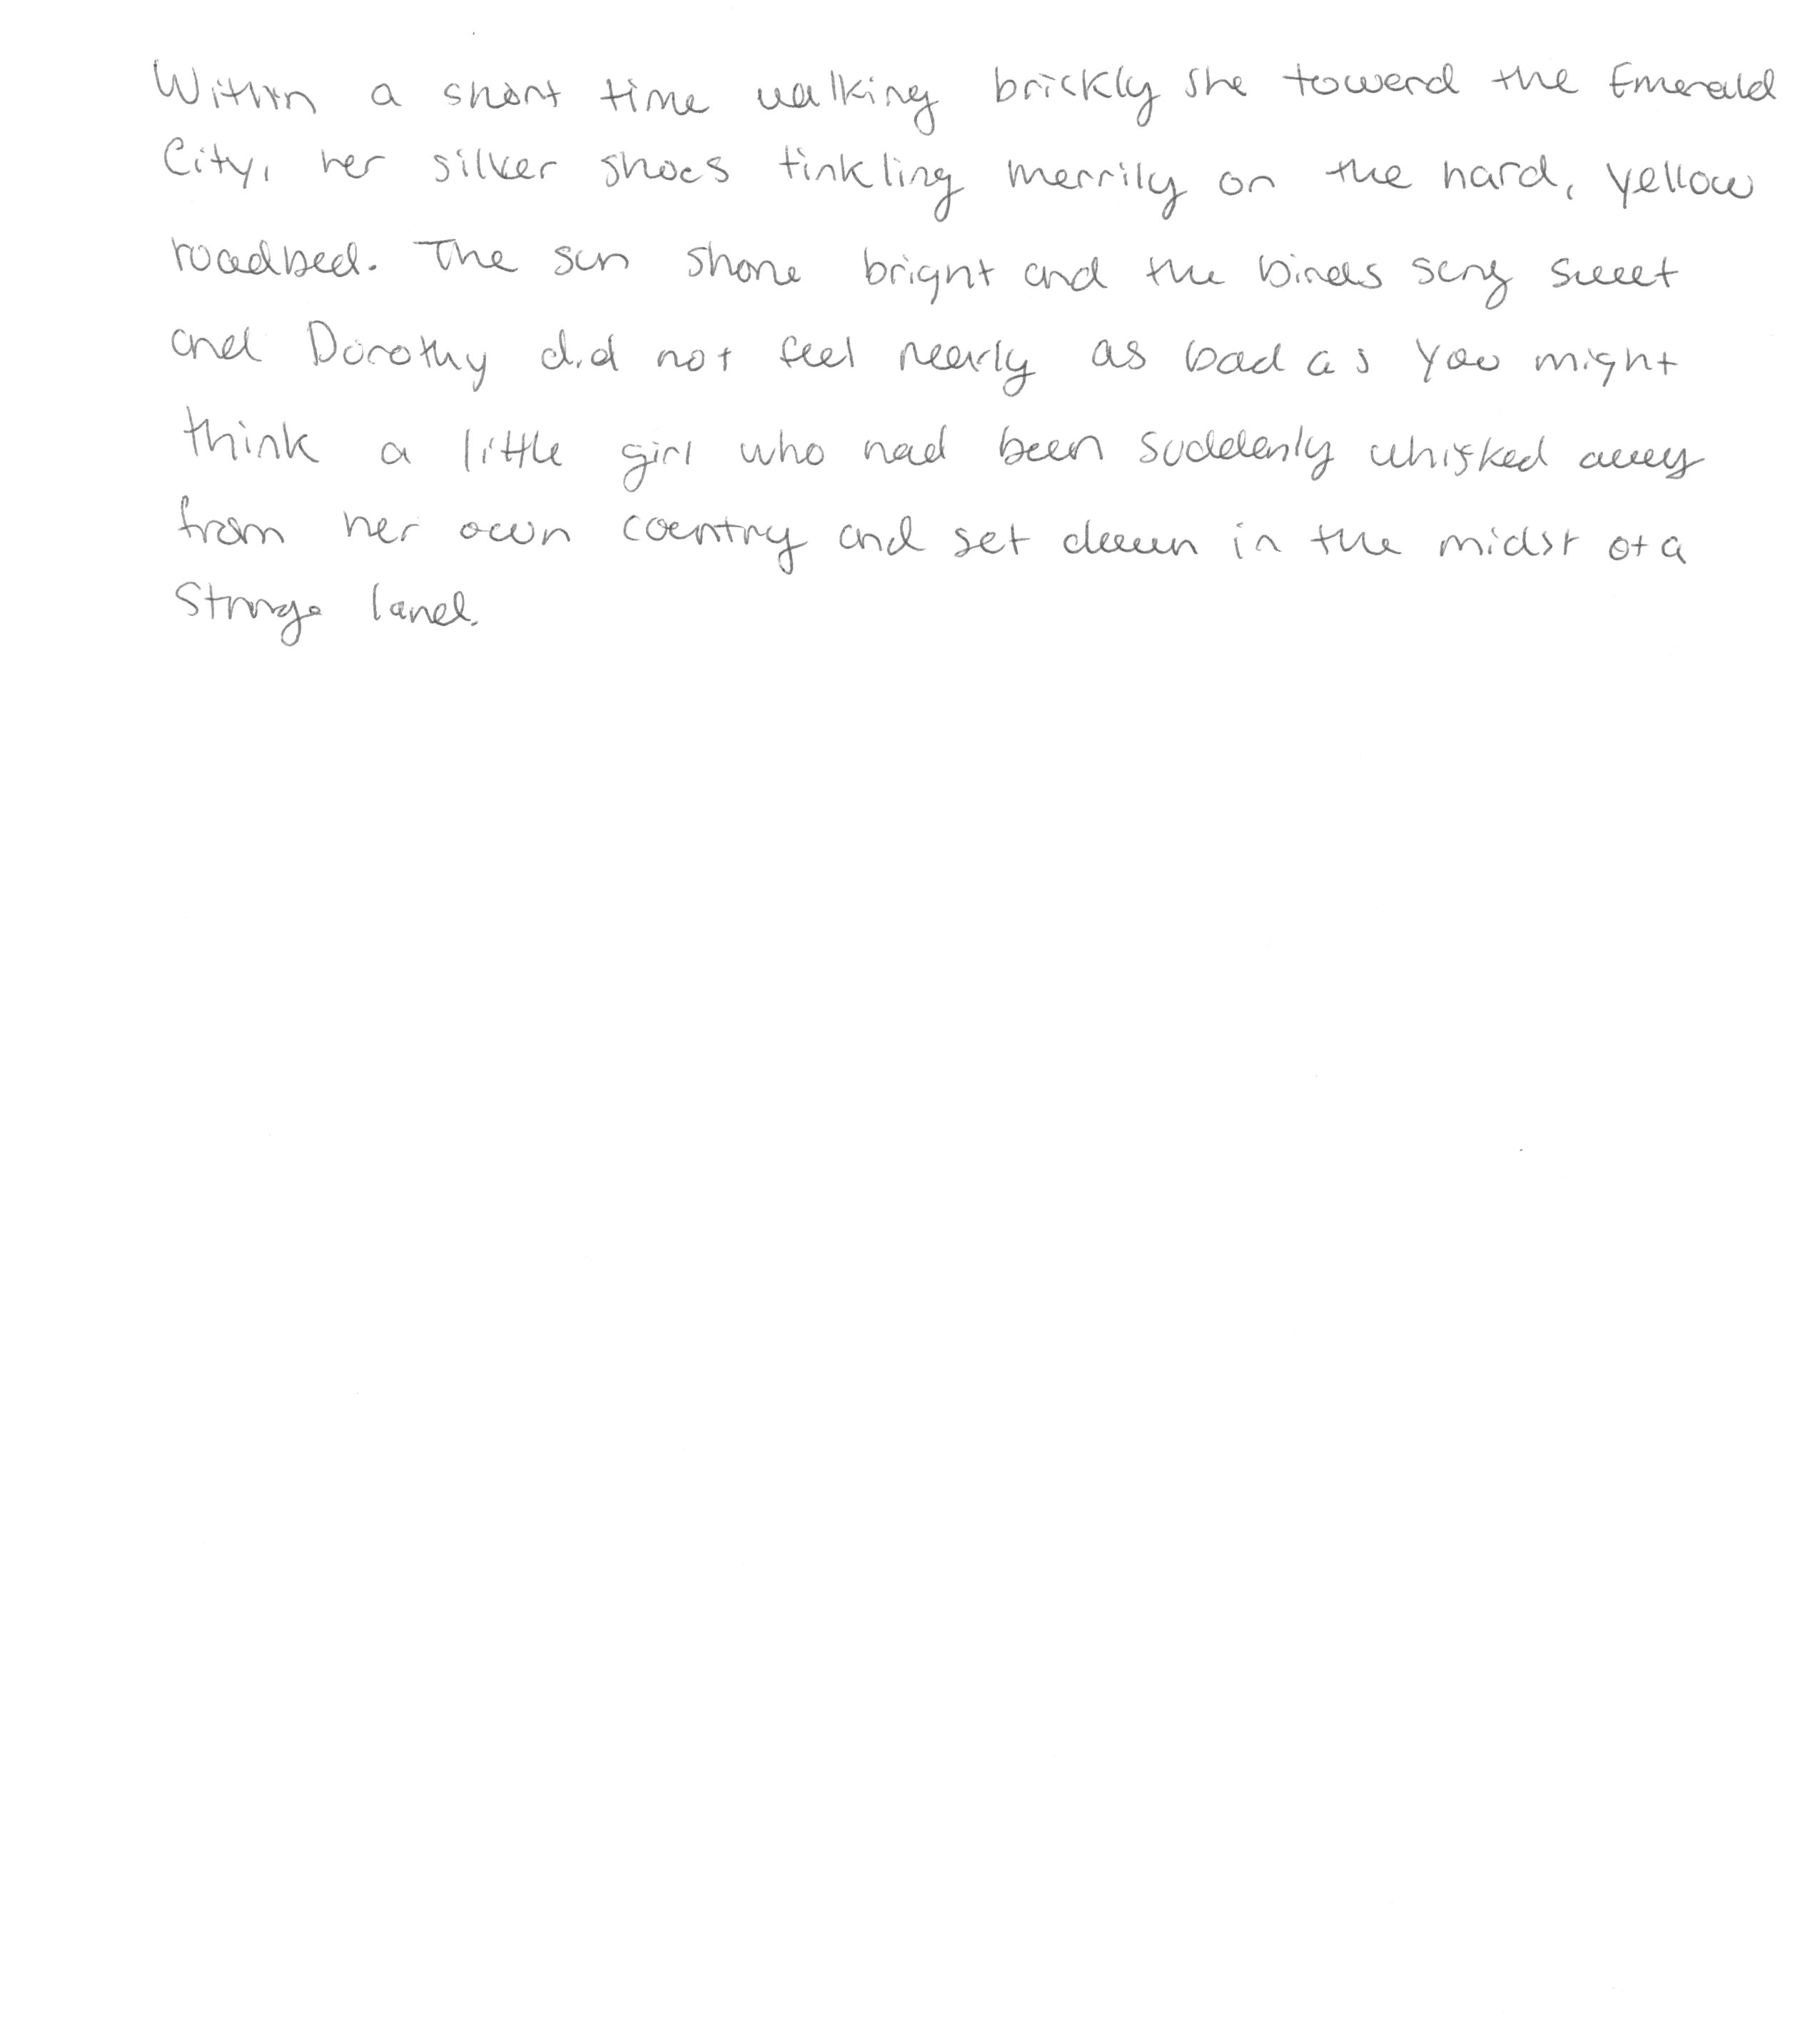 Within a short time walking brickly she toward the Emerald
City, her silver shoes tinkling merrily on the hard, yellow
roadbed. The sun shone bright and the birds sang sweet
and Dorothy did not feel nearly as bad as you might
think a little girl who had been suddenly whisked away
from her own country and set down in the midst of a
Strange land.